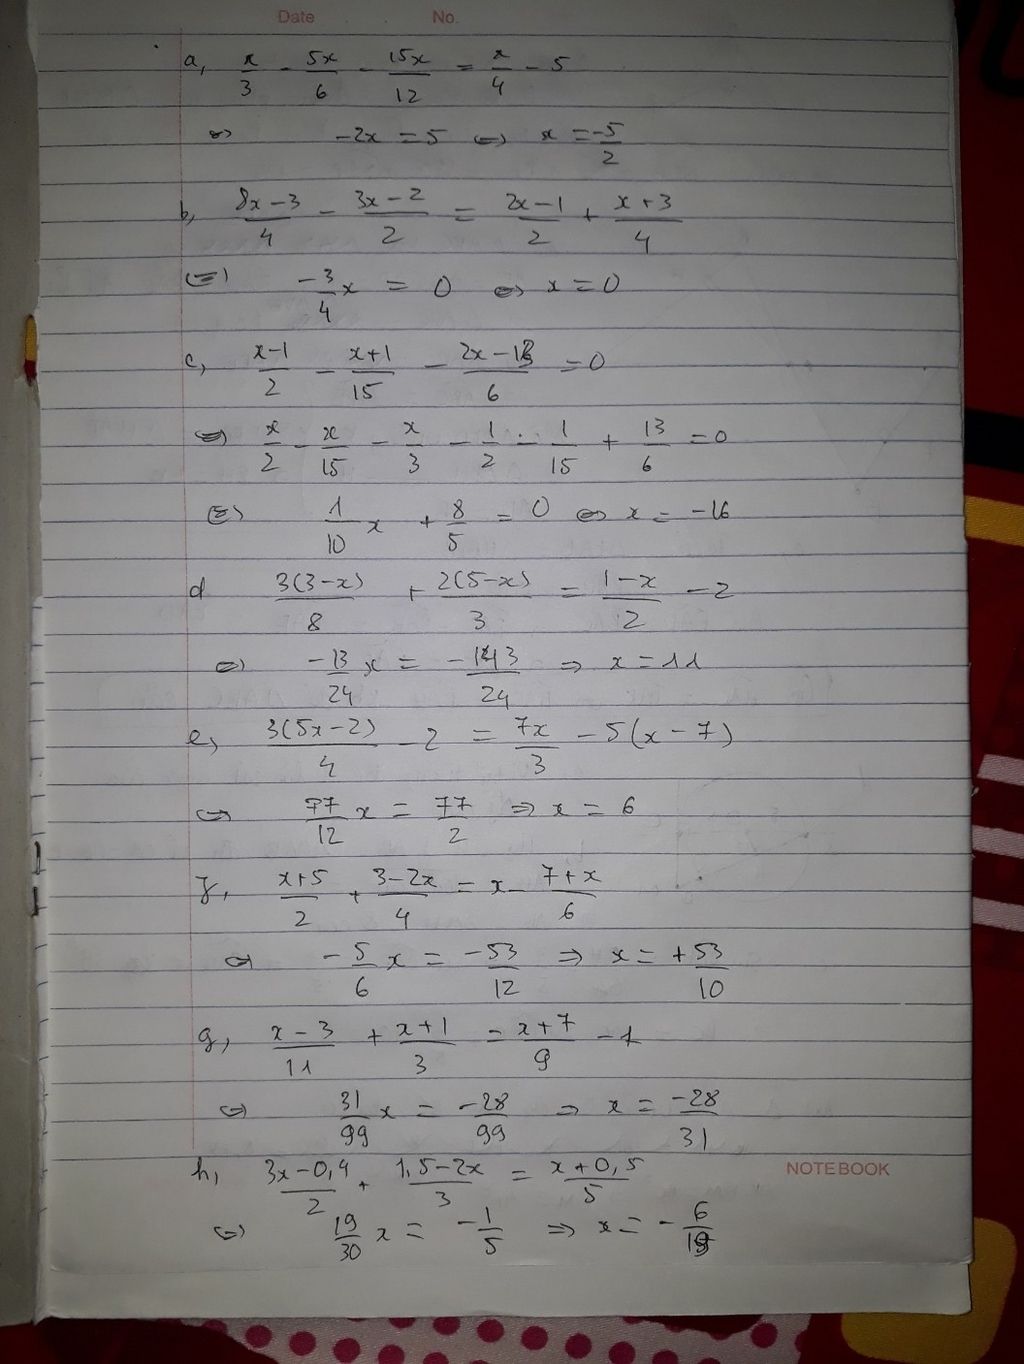 Date No.
a, x/3 - 5x/6 - 15x/12 = x/4 - 5
⇔ -2x = 5 ⇔ x = -5/2
b, 8x-3/4 - 3x-2/2 = 2x-1/2 + x+3/4
⇔ -3/4 x = 0 ⇔ x = 0
c, x-1/2 - x+1/15 - 2x-13/6 = 0
⇔ x/2 - x/15 - x/3 - 1/2 - 1/15 + 13/6 = 0
⇔ 1/10 x + 8/5 = 0 ⇔ x = -16
d 3(3-x)/8 + 2(5-x)/3 = 1-x/2 - 2
⇔ -13/24 x = -143/24 ⇒ x = 11
e, 3(5x-2)/4 - 2 = 7x/3 - 5(x-7)
⇔ 77/12 x = 77/2 ⇒ x = 6
f, x+5/2 + 3-2x/4 = x - 7+x/6
⇔ -5/6 x = -53/12 ⇒ x = +53/10
g, x-3/11 + x+1/3 = x+7/9 - 1
⇔ 31/99 x = -28/99 ⇒ x = -28/31
h, 3x-0,4/2 + 1,5-2x/3 = x+0,5/5
NOTEBOOK
⇔ 19/30 x = -1/5 ⇒ x = -6/19